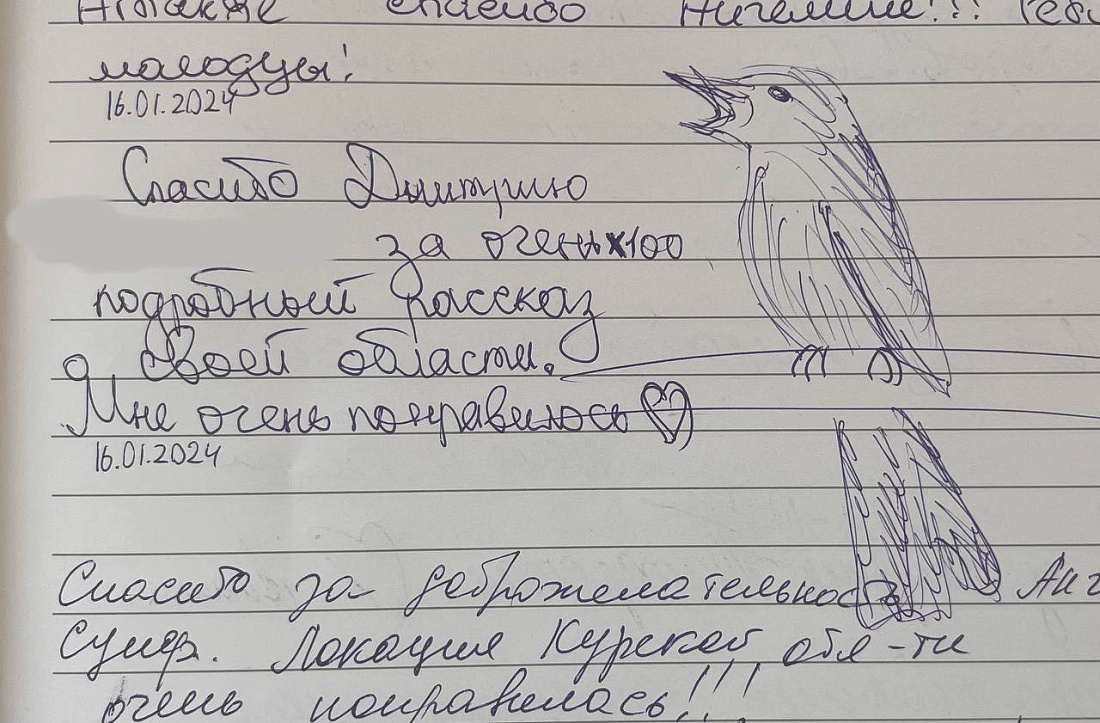 А также спасибо !!!
молодцы!
16.01.2024
Спасибо Дмитрию
за очень×100
подробный рассказ
о своей области.
Мне очень понравилось
16.01.2024
Спасибо за доброжелательность
Локация Курской обл-ти
очень понравилась!!!